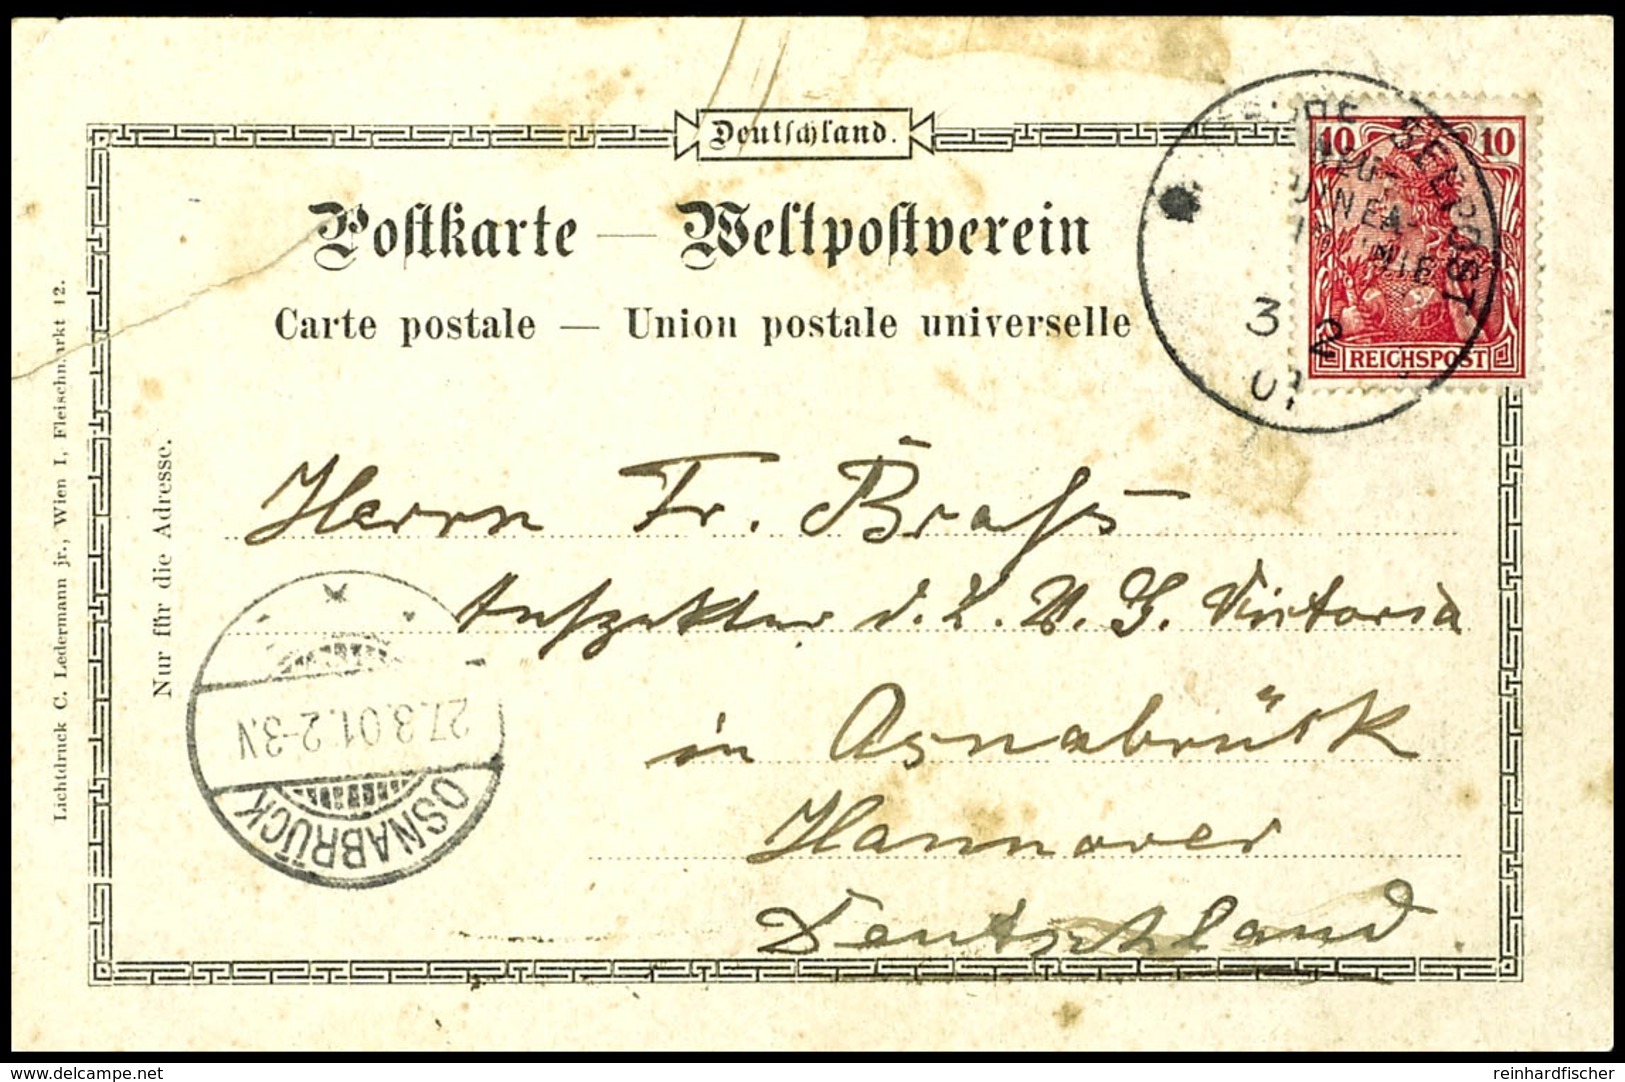 Deutschland.
Postkarte — Weltpostverein
Carte postale — Union postale universelle
10 10
REICHSPOST
SEEPOST
NEU-
GUINEA-
3 2
01
Herrn Fr. Brass
d. L. V. G. Victoria
in Osnabrück
Hannover
Deutschland
Nur für die Adresse.
Lichtdruck C. Ledermann jr., Wien I, Fleischmarkt 12.
27.3.01.2-3.N
OSNABRÜCK
www.delcampe.net
reinhardfischer